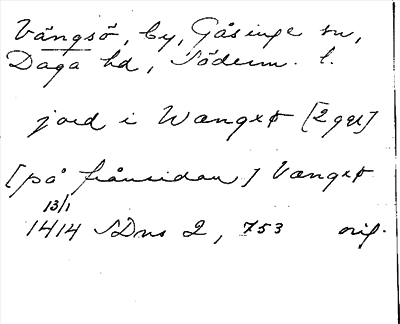 Vängsö, by, Gåsinge sn,
Daga hd, Söderm. l.
jord i Wangxø [2 ggr]
[på frånsidan] Vangxø
13/1
1414 SDns 2, 753 orig.